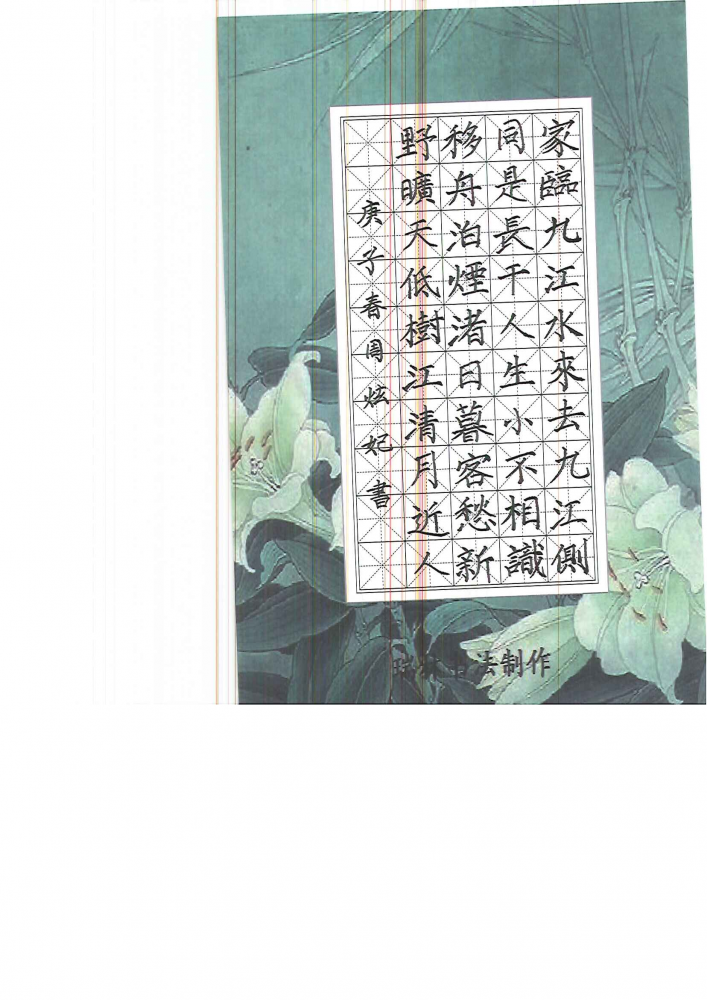 家臨九江水來去九江側
同是長干人生小不相識
移舟泊煙渚日暮客愁新
野曠天低樹江清月近人
庚子春周炫妃書
书法制作